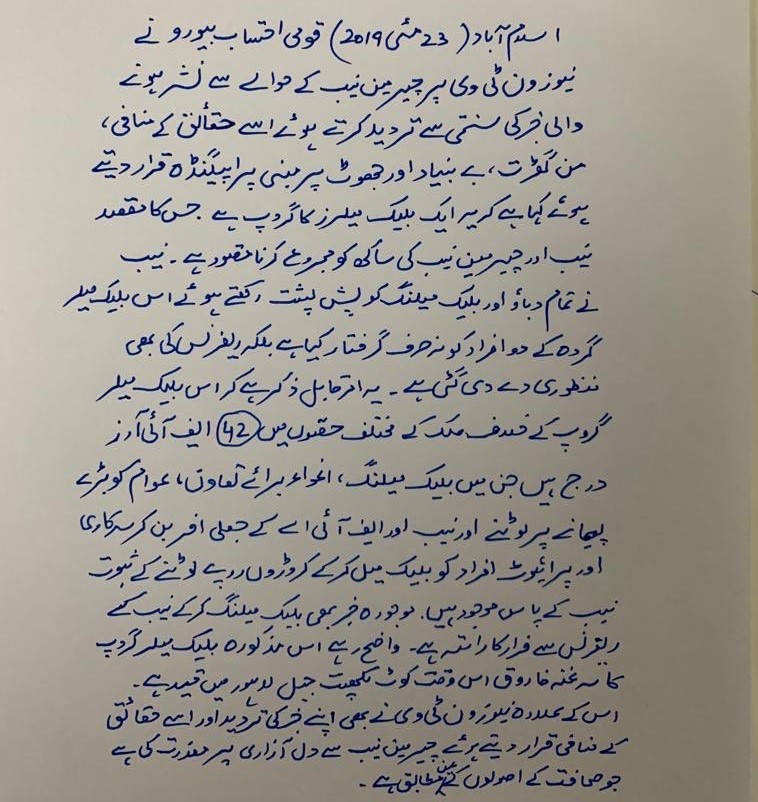 اسلام آباد (23 مئی 2019) قومی احتساب بیورو نے
نیوز ون ٹی وی پر چیرمین نیب کے حوالے سے نشر ہونے
والی خبر کی سختی سے تردید کرتے ہوئے اسے حقائق کے منافی،
من گھڑت، بے بنیاد اور جھوٹ پر مبنی پراپیگنڈہ قرار دیتے
ہوئے کہا ہے کہ یہ ایک بلیک میلرز کا گروپ ہے جس کا مقصد
نیب اور چیرمین نیب کی ساکھ کو مجروح کرنا مقصود ہے۔ نیب
نے تمام دباؤ اور بلیک میلنگ کو پس پشت رکھتے ہوئے اس بلیک میلر
گروہ کے دو افراد کو نہ صرف گرفتار کیا ہے بلکہ ریفرنس کی بھی
منظوری دے دی گئی ہے۔ یہ امر قابل ذکر ہے کہ اس بلیک میلر
گروپ کے خلاف ملک کے مختلف حصوں میں 42 ایف آئی آرز
درج ہیں جن میں بلیک میلنگ، اغواء برائے تاوان، عوام کو بڑے
پیمانے پر لوٹنے اور نیب اور ایف آئی اے کے جعلی افسر بن کر سرکاری
اور پرائیوٹ افراد کو بلیک میل کر کے کروڑوں روپے لوٹنے کے ثبوت
نیب کے پاس موجود ہیں۔ موجودہ خبر بھی بلیک میلنگ کر کے نیب کے
ریفرنس سے فرار کا راستہ ہے۔ واضح رہے اس مذکورہ بلیک میلر گروپ
کا سرغنہ فاروق اس وقت کوٹ لکھپت جیل لاہور میں قید ہے۔
اس کے علاوہ نیوز ون ٹی وی نے بھی اپنے خبر کی تردید اور اسے حقائق
کے منافی قرار دیتے ہوئے چیرمین نیب سے دل آزاری پر معذرت کی ہے
جو صحافت کے اصولوں کے عین مطابق ہے۔